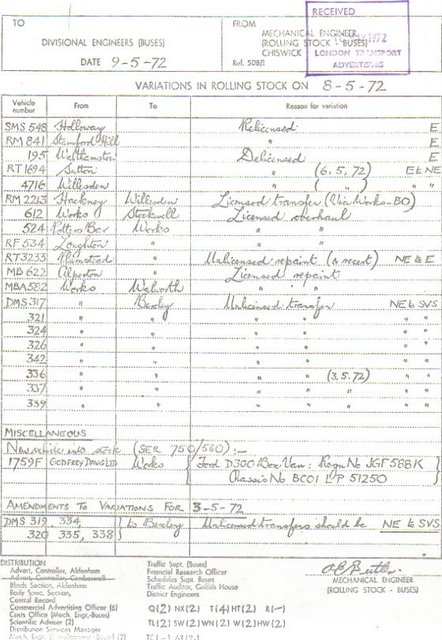 TO
DIVISIONAL ENGINEERS (BUSES)
DATE 9-5-72
FROM
MECHANICAL ENGINEER
(ROLLING STOCK - BUSES)
CHISWICK
Ref. 508/1
RECEIVED
1972
LONDON TRANSPORT
ADVERTISING
VARIATIONS IN ROLLING STOCK ON 8-5-72
Vehicle number From To Reason for variation
SMS 548 Holloway Relicensed E
RM 841 Stamford Hill " E
195 Walthamstow Delicensed E
RT 1694 Sutton " (6.5.72) E to NE
4716 Willesden " ( " ) "
RM 2213 Hackney Willesden Licensed transfer (Via Works-BO)
612 Works Stockwell Licensed overhaul
524 Potters Bar Works " "
RF 534 Loughton " " "
RT 3233 Plumstead " Unlicensed repaint (a recert) NE to E
MB 622 Alperton " Licensed repaint
MBA 582 Works Walworth " "
DMS 317 " Bexley Unlicensed transfer NE to SVS
321 " " " " " "
324 " " " " " "
326 " " " " " "
342 " " " " " "
336 " " " " (3.5.72) " "
337 " " " " " " "
339 " " " " " " "
MISCELLANEOUS
New vehicle into stock (SER 750/580) :-
1759F GODFREY DAVIS LTD Works Ford D300 Box Van: Regn No JGF 588K
Chassis No BC01 51250
AMENDMENTS TO VARIATIONS FOR 3-5-72
DMS 319, 334 to Bexley Unlicensed transfers should be NE to SVS
320 335, 338
MECHANICAL ENGINEER
(ROLLING STOCK - BUSES)
DISTRIBUTION
Advert. Controller, Aldenham
Advert. Controller, Camberwell
Blinds Section, Aldenham
Body Spec. Section
Central Record
Commercial Advertising Officer (6)
Costs Office (Mech. Engr.-Buses)
Scientific Adviser (2)
Distribution Services Manager
Traffic Supt. (Buses)
Financial Research Officer
Schedules Supt. Buses
Traffic Auditor, Griffith House
District Engineers
Q(2) NX(2) T(4) HT(2) R(-)
TL(2) SW(2) WN(2) W(2) HW(2)